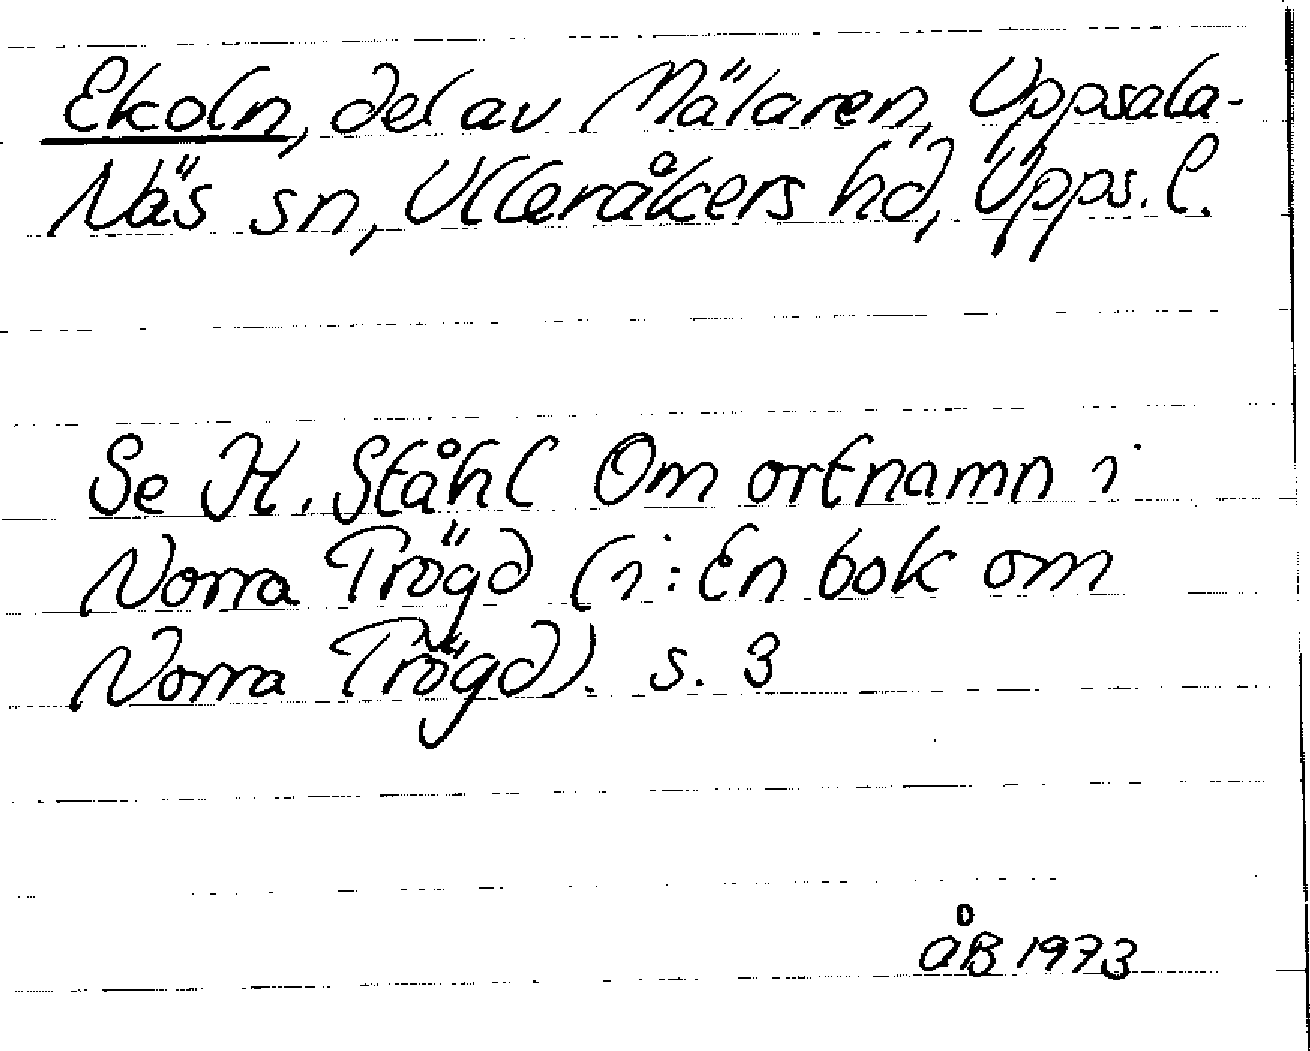 Ekoln, del av Mälaren, Uppsala-
Näs sn, Ulleråkers hd, Upps. l.
Se H. Ståhl Om ortnamn i
Norra Trögd (i: En bok om
Norra Trögd). s. 3
åB 1973